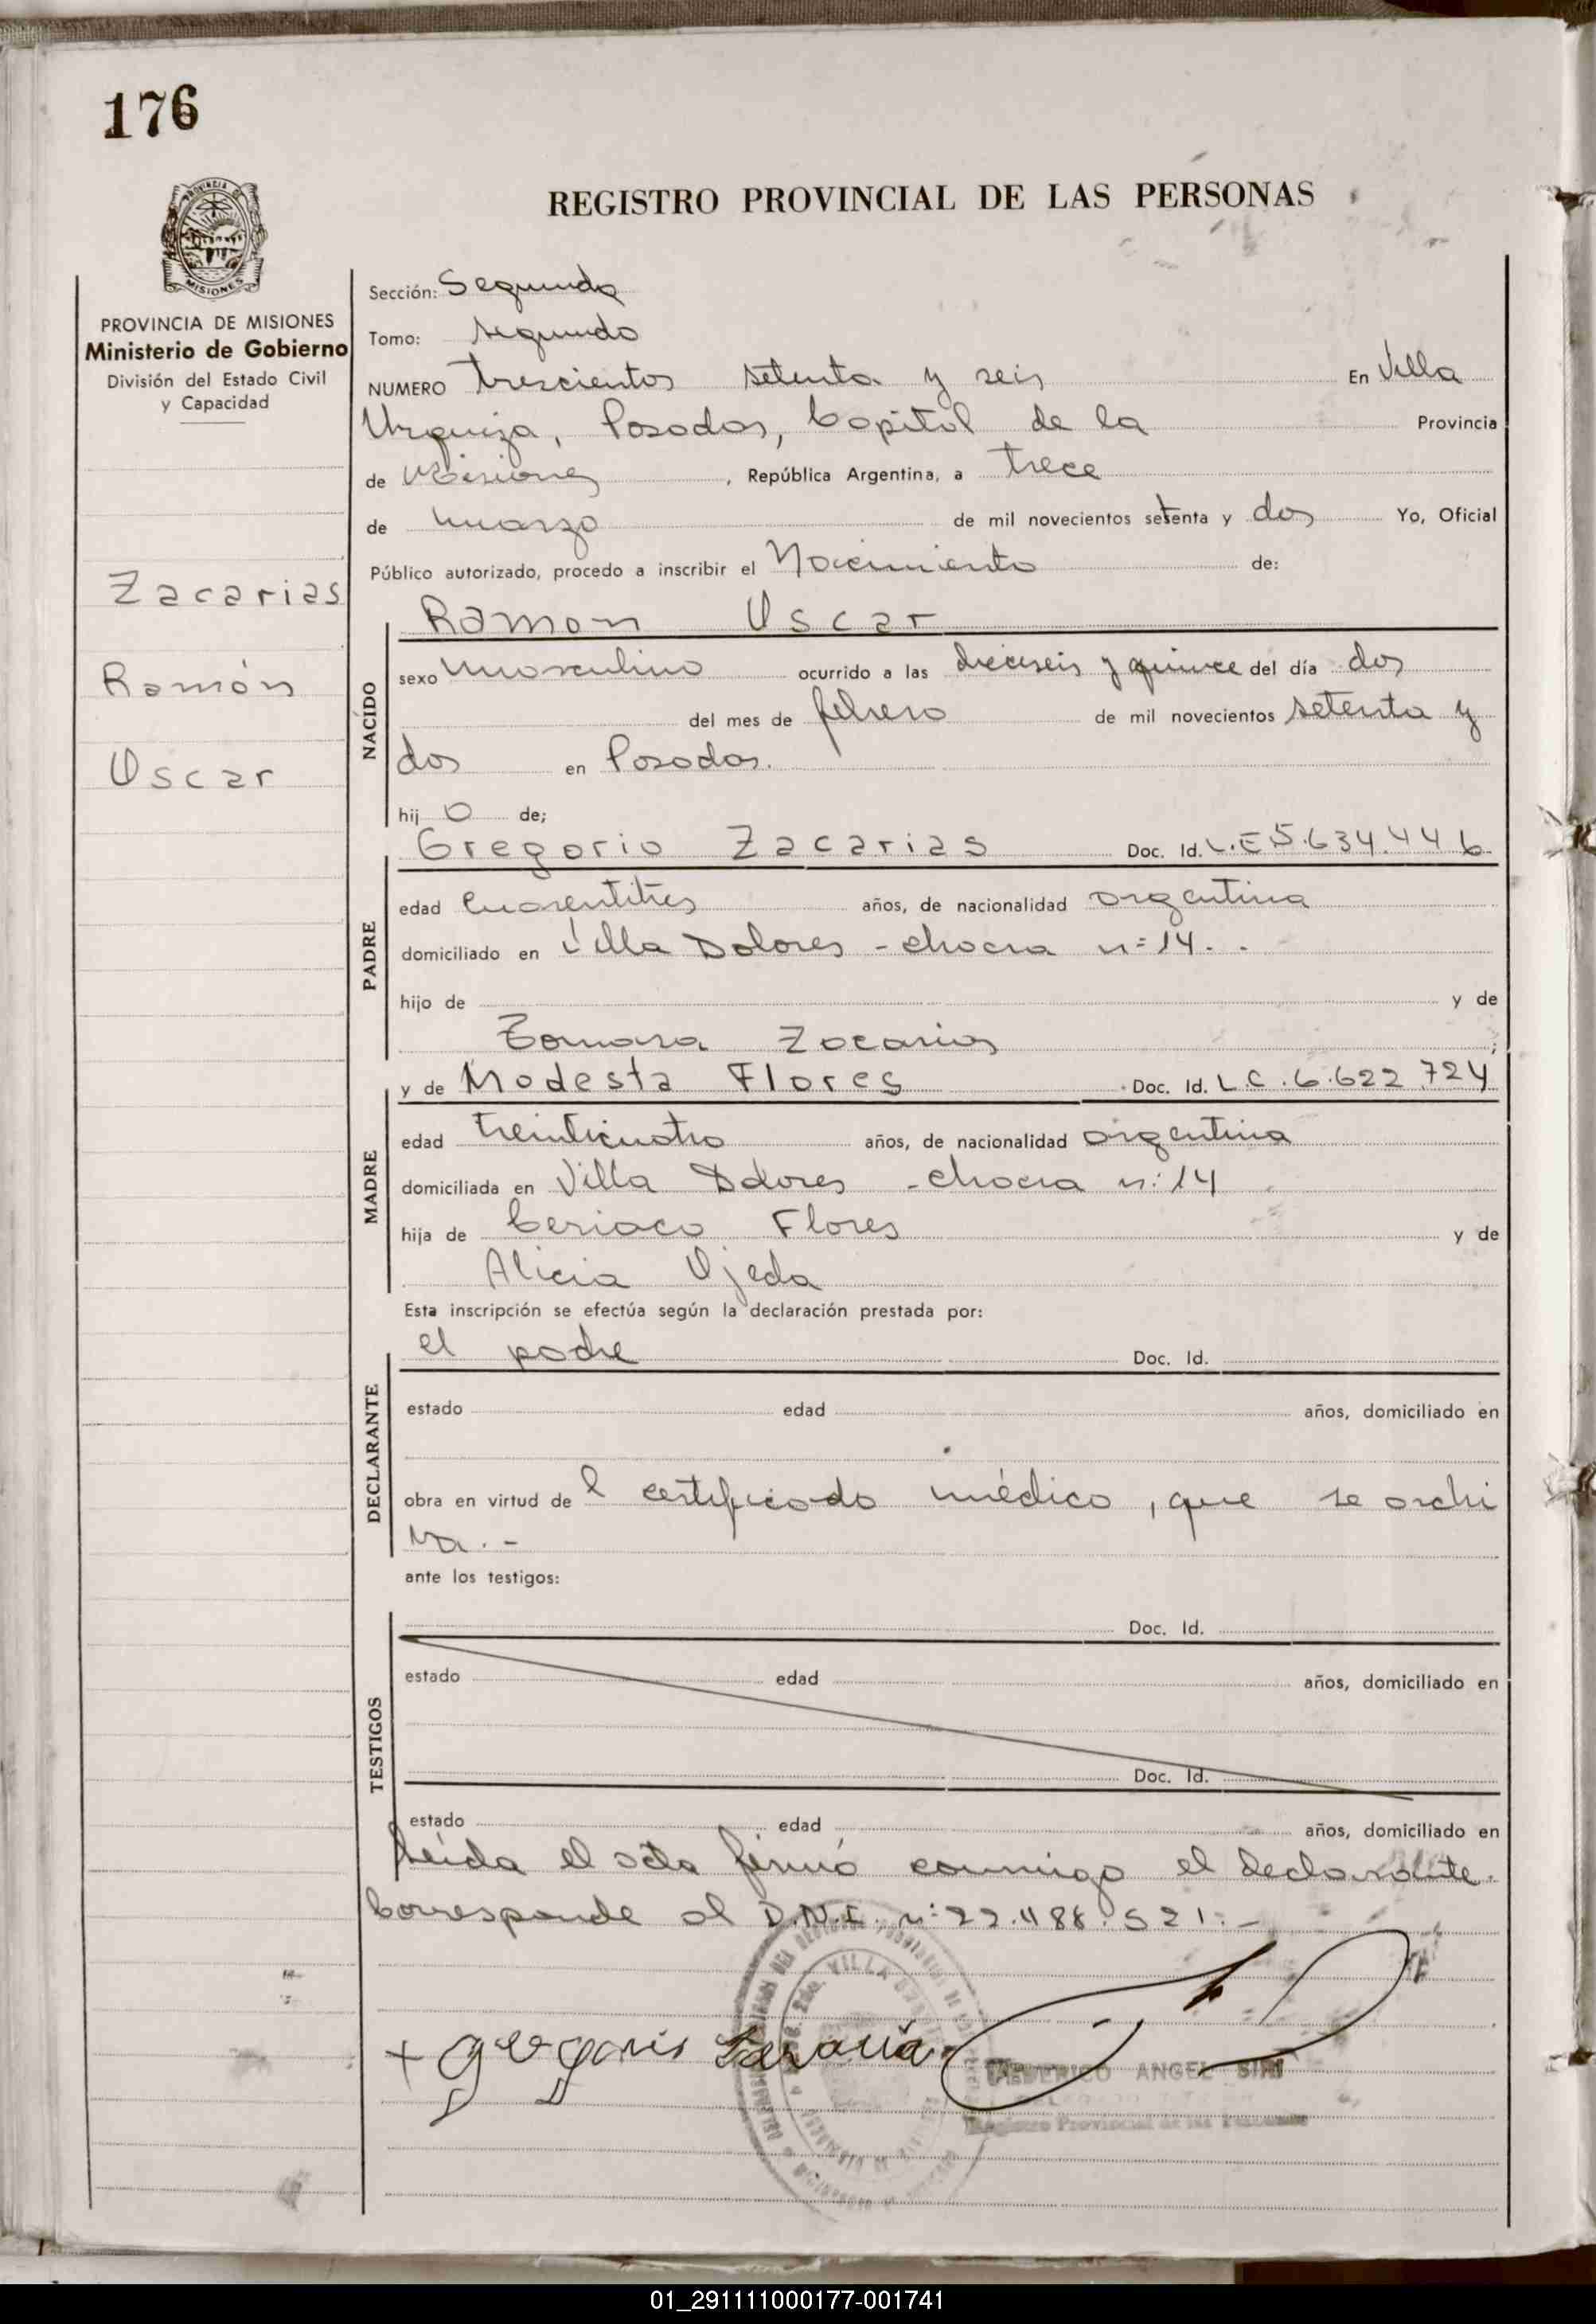 176
REGISTRO PROVINCIAL DE LAS PERSONAS
PROVINCIA DE MISIONES
MISIONES
PROVINCIA DE MISIONES
Ministerio de Gobierno
División del Estado Civil
y Capacidad
Zacarias
Ramón
Oscar
Sección: Segunda
Tomo: segundo
NUMERO trescientos setenta y seis En Villa
Urquiza, Posadas, Capital de la Provincia
de Misiones, República Argentina, a trece
de marzo de mil novecientos setenta y dos Yo, Oficial
Público autorizado, procedo a inscribir el Nacimiento de:
Ramon Oscar
NACIDO
sexo masculino ocurrido a las dieciseis y quince del día dos
del mes de febrero de mil novecientos setenta y
dos en Posadas.
hij o de;
Gregorio Zacarias Doc. Id. L.E 5.634.446
PADRE
edad cuarentitres años, de nacionalidad argentina
domiciliado en Villa Dolores - chacra n:14. -
hijo de y de
Tomasa Zacarias ;
y de Modesta Flores Doc. Id. L.C.6.622.724
MADRE
edad treinticuatro años, de nacionalidad argentina
domiciliada en Villa Dolores - chacra n:14
hija de Ceriaco Flores y de
Alicia Ojeda
Esta inscripción se efectúa según la declaración prestada por:
el padre Doc. Id.
DECLARANTE
estado edad años, domiciliado en
obra en virtud de l certificado médico, que se archi
va. -
ante los testigos:
Doc. Id.
TESTIGOS
estado edad años, domiciliado en
Doc. Id.
estado edad años, domiciliado en
Leída el acta firmó conmigo el declarante.
Corresponde al D.N.I. n:22.488.521. -
VILLA
+ gregorio
ANGEL
Registro Provincial de las Personas
01_291111000177-001741